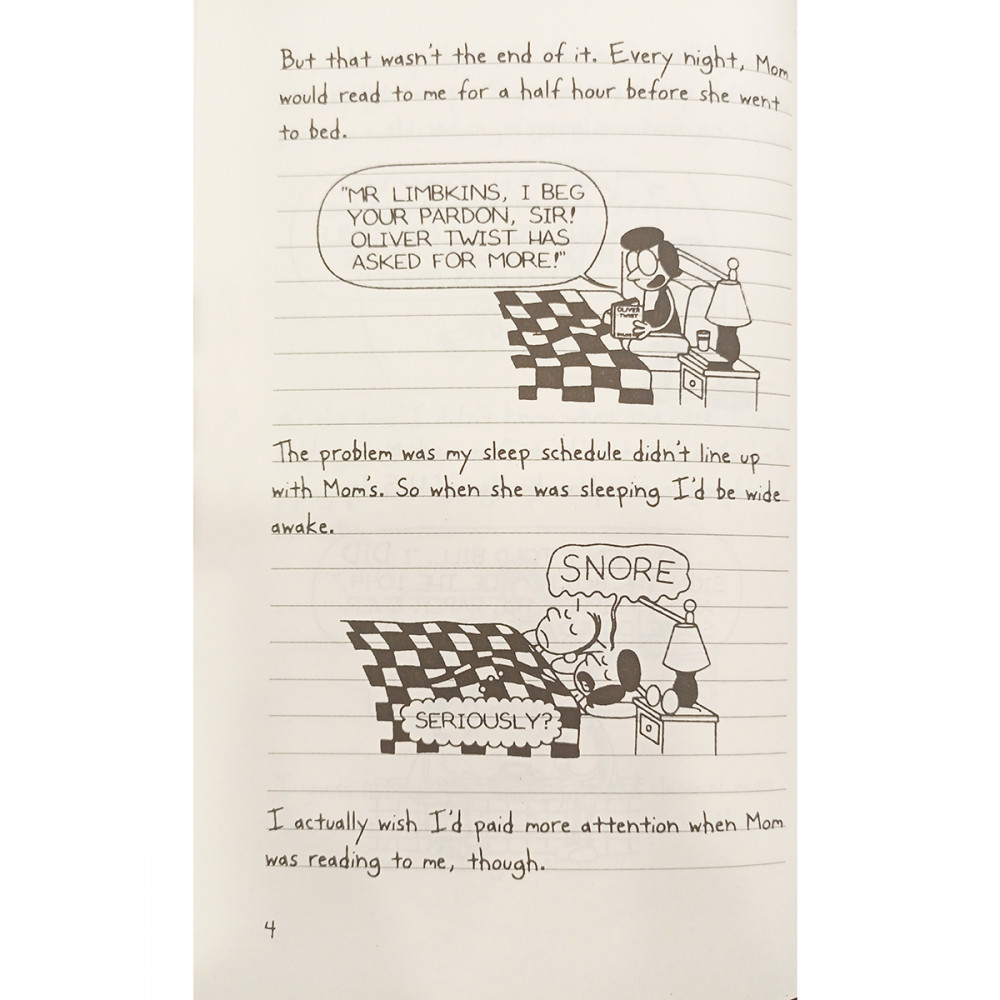 But that wasn't the end of it. Every night, Mom
would read to me for a half hour before she went
to bed.
"MR LIMBKINS, I BEG
YOUR PARDON, SIR!
OLIVER TWIST HAS
ASKED FOR MORE!"
OLIVER
TWIST
The problem was my sleep schedule didn't line up
with Mom's. So when she was sleeping I'd be wide
awake.
SNORE
SERIOUSLY?
I actually wish I'd paid more attention when Mom
was reading to me, though.
4